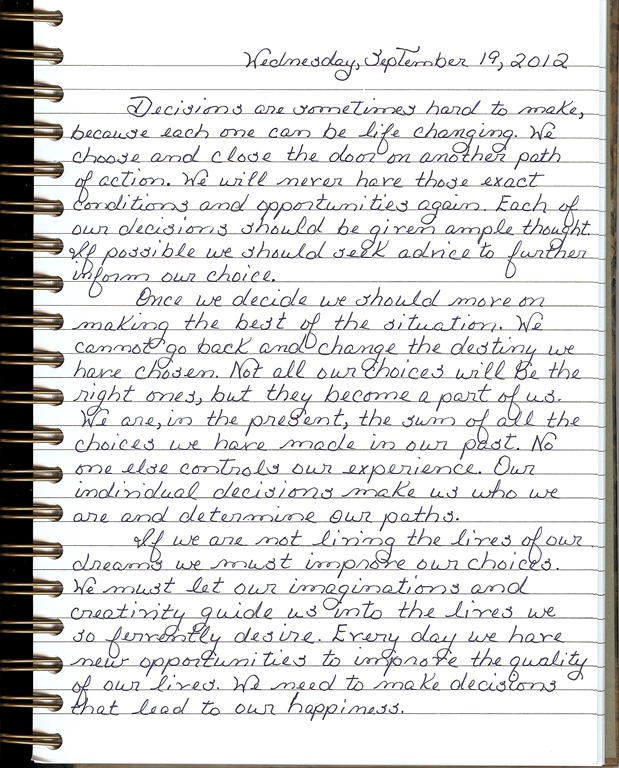 Wednesday, September 19, 2012
Decisions are sometimes hard to make,
because each one can be life changing. We
choose and close the door on another path
of action. We will never have those exact
conditions and opportunities again. Each of
our decisions should be given ample thought.
If possible we should seek advice to further
inform our choice.
Once we decide we should move on
making the best of the situation. We
cannot go back and change the destiny we
have chosen. Not all our choices will be the
right ones, but they become a part of us.
We are, in the present, the sum of all the
choices we have made in our past. No
one else controls our experience. Our
individual decisions make us who we
are and determine our paths.
If we are not living the lives of our
dreams we must improve our choices.
We must let our imaginations and
creativity guide us into the lives we
so fervently desire. Every day we have
new opportunities to improve the quality
of our lives. We need to make decisions
that lead to our happiness.